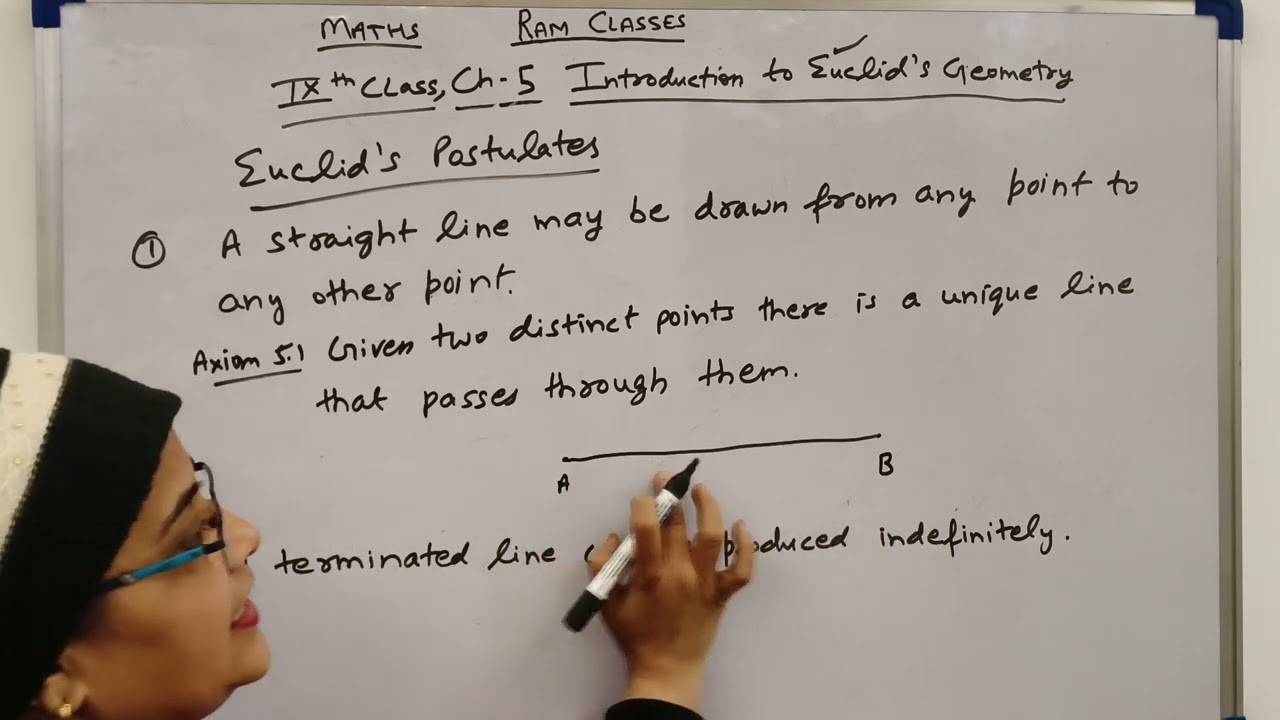 MATHS RAM CLASSES
IXth CLASS, Ch-5 Introduction to Euclid's Geometry
Euclid's Postulates
① A straight line may be drawn from any point to
any other point.
Axiom 5.1 Given two distinct points there is a unique line
that passes through them.
A B
terminated line produced indefinitely.